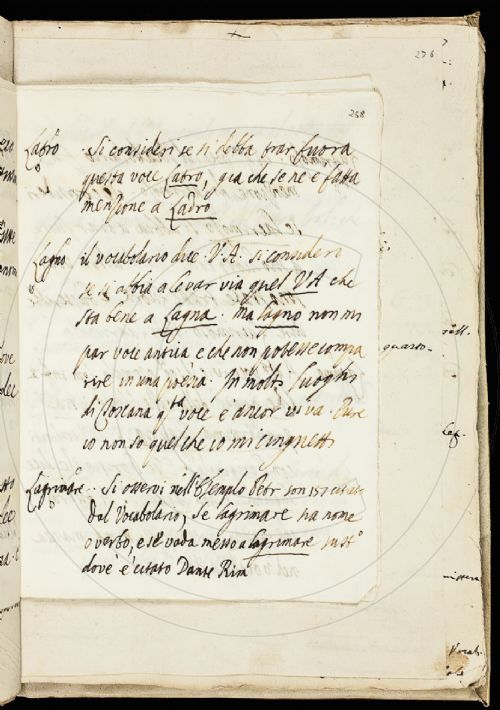 276
258
Labro . Si consideri se si debba trar fuora
questa voce Labro, gia che se ne è fatta
menzione a Ladro
Lagno il vocabolario dice . V.A. si consideri
se si abbia a levar via quel VA che
sta bene a Lagna . Ma Lagno non mi
par voce antica e che non potesse compa
rire in una poesia . In molti luoghi
di Toscana qta voce è ancor viva . Pure
io non so quel che io mi cinguetti
Lagrimare . Si osservi nell'Esemplo Petr son 157 citato
Dal Vocabolario, se lagrimare sia nome
o verbo, e se vada messo a lagrimare
dove è citato Dante Rim